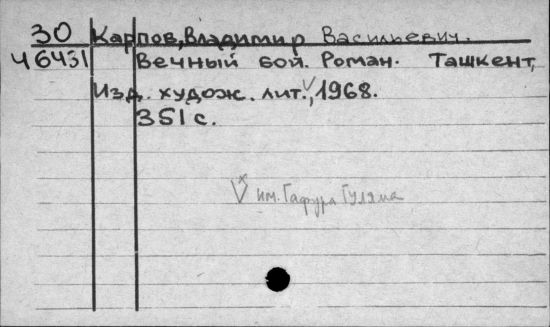 30 Карпов, Владимир Васильевич.
Ч 6431 Вечный бой. Роман. Ташкент,
Изд. худож. лит., 1968.
351 с.
V им. Гафура Гуляма